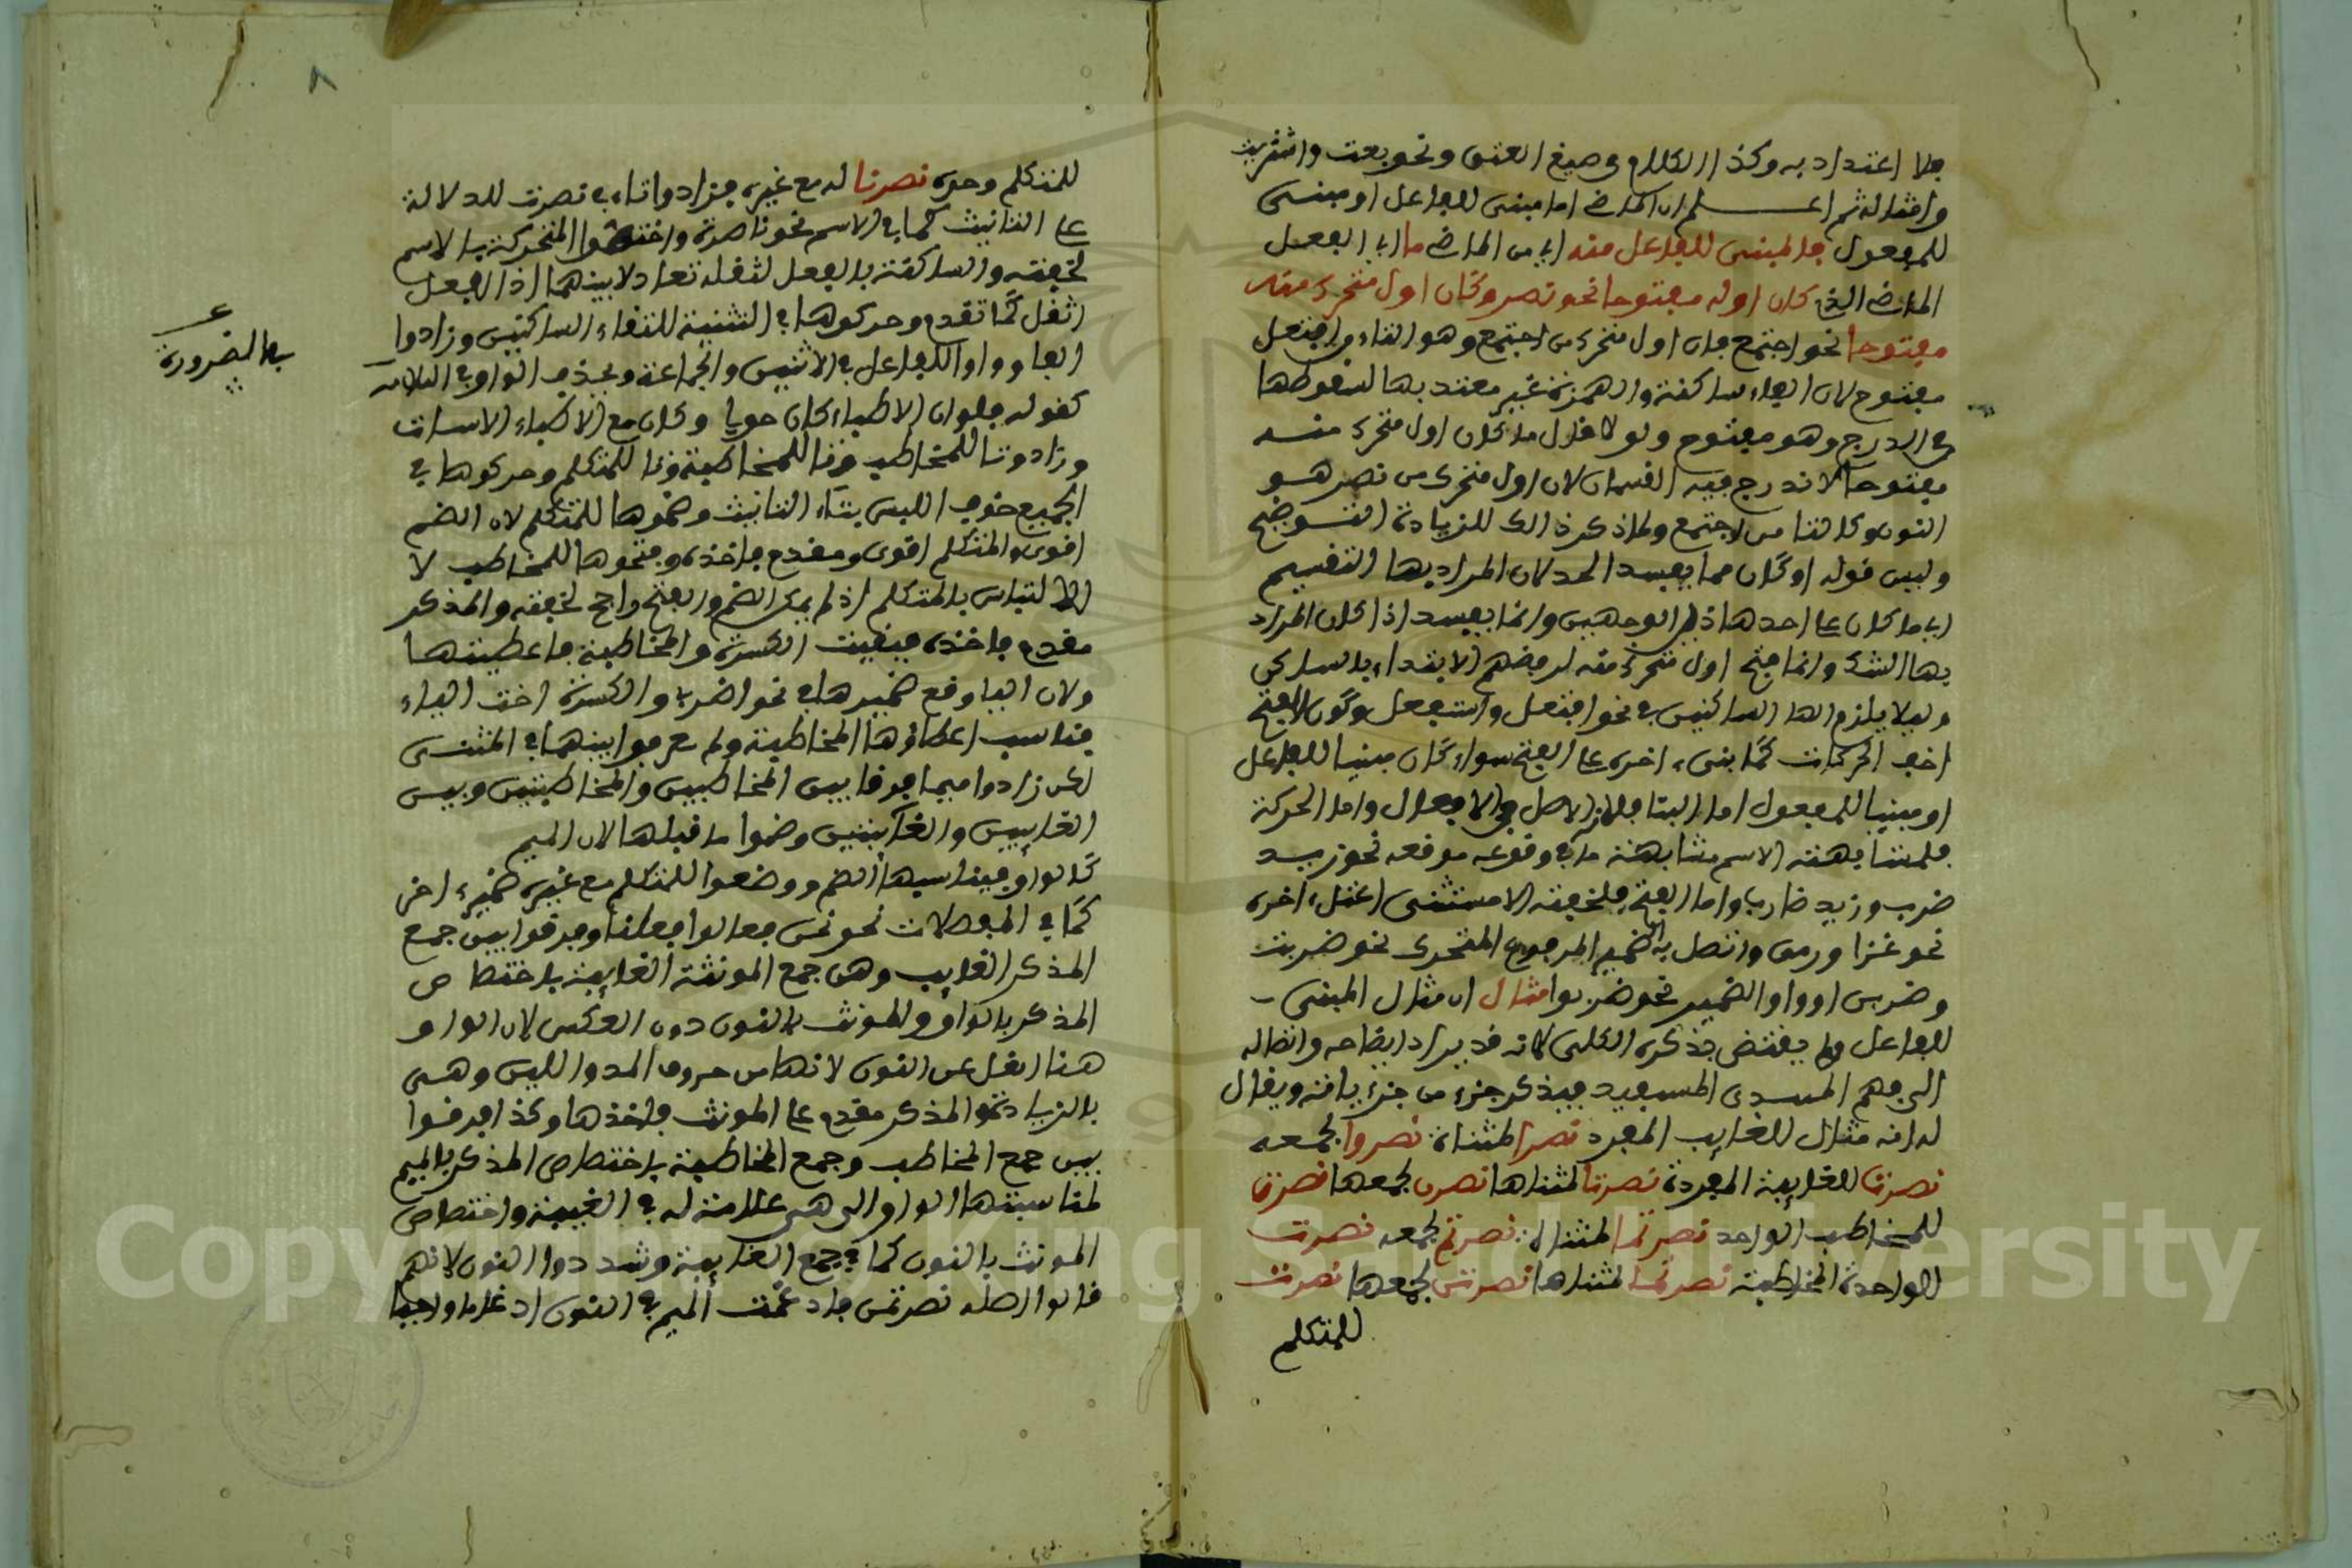 فلا اعتداد به وكذا الكلام في صيغ العتق ونحو بعت واشتريت
وامثاله ثم اعلم ان الماضي اما مبني للفاعل او مبني
للمفعول فالمبني للفاعل منه اي من الماضي ما اي الفعل
الماضي الذي كان اوله مفتوحا نحو نصر وكان اول متحرك منه
مفتوحا نحو اجتمع فان اول متحرك من اجتمع وهو التاء من افتعل
مفتوح لان الفاء ساكنة والهمزة غير معتد بها لسقوطها
في الدرج وهو مفتوح ولو قال ما كان اول متحرك منه
مفتوحا لاندرج فيه القسمان لان اول متحرك من نصر هو
النون وكالتا من اجتمع وانما ذكر ذلك للزيادة التوضيح
وليس قوله او كان مما يفسد الحد لان المراد بها التقسيم
اي ما كان على احد هاذين الوجهين وانما يفسد اذا كان المراد
بها الشك وانما فتح اول متحرك منه لرفضهم الابتداء بالساكن
وليلا يلزم التقا الساكنين في نحو افتعل واستفعل وكون الفتح
اخف الحركات كما بنىء اخره على الفتح سواء كان مبنيا للفاعل
او مبنيا للمفعول اما البنا فلانه الاصل في الافعال واما الحركة
فلمشابهته الاسم مشابهة ما في وقوعه موقعه نحو زيد
ضرب وزيد ضارب واما الفتح فلخفته الا مستثنى اعتل اخره
نحو غزا ورمى واتصل به الضمير المرفوع المتحرك نحو ضربت
وضربن او واو الضمير نحو ضربوا مثال ان مثال المبني
للفاعل ولم يقتض بذكره الكلى لانه قد يراد ايضاحه وايصاله
الى فهم المبتدي المستفيد فيذكر جزء من جزءياته ويقال
له انه مثال للغايب المفرد نصرا لمثناه نصروا لجمعه
نصرت للغايبة المفردة نصرتا لمثناها نصرن لجمعها نصرت
للمخاطب الواحد نصرتما لمثناه نصرتم لجمعه نصرت
للواحدة المخاطبة نصرتما لمثناها نصرتن لجمعها نصرت
للمتكلم
٨
للمتكلم وحده نصرنا له مع غيره فزادوا تاء في نصرت للدلالة
على التانيث كما في الاسم نحو ناصرة واختصوا المتحركة بالاسم
لخفته والساكنة بالفعل لثقله تعادلا بينهما اذ الفعل
اثقل كما تقدم وحركوها في التثنية لالتقاء الساكنين وزادوا
الفا وواوا للفاعل في الاثنين والجماعة وبحذف الواو في
كقوله فلو ان الاطباء كان حولي وكان مع الاطباء الاساة
وزادوتا للمخاطب وتا للمخاطبة وتا للمتكلم وحركوها في
الجميع خوف اللبس بتاء التانيث وضموها للمتكلم لان الضم
اقوى والمتكلم اقوى ومقدم فاخذه وفتحوها للمخاطب لا
لالتباس بالمتكلم اذ لم يمكن الضم والفتح راجح لخفته والمذكر
مقدم فاخذه فبقيت الكسرة والمخاطبة فاعطيتها
ولان اليا وقع ضميرها في نحو اضربي والكسرة اخت الياء
فناسب اعطاؤها المخاطبة ولم يفرقوا بينهما في المثنى
لكن زادوا ميما فرقا بين المخاطبين والمخاطبتين وبين
الغايبين والغايبتين وضموا ما قبلها لان الميم
كالواو فيناسبها الضم ووضعوا للمتكلم مع غيره ضميرا اخر
كما في المنفصلات نحو نحن فقالوا فعلنا وفرقوا بين جمع
المذكر الغايب وهن جمع المونثة الغايبة باختصاص
المذكر بالواو والمونث بالنون دون العكس لان الواو
هنا اثقل عن النون لانها من حروف المد واللين وهي
بالزيادة والمذكر مقدم على المونث فاخذها وكذا فرقوا
بين جمع المخاطب وجمع المخاطبة باختصاص المذكر بالميم
لمناسبتها الواو الى هي علامة له في الغيبة واختصاص
المونث بالنون كما في جمع الغايبة وشددوا النون لانهم
قالوا اصله نصرتمن فادغمت الميم في النون ادغاما واجبا
ع
بها الضرورة
Copyright © King Saud University